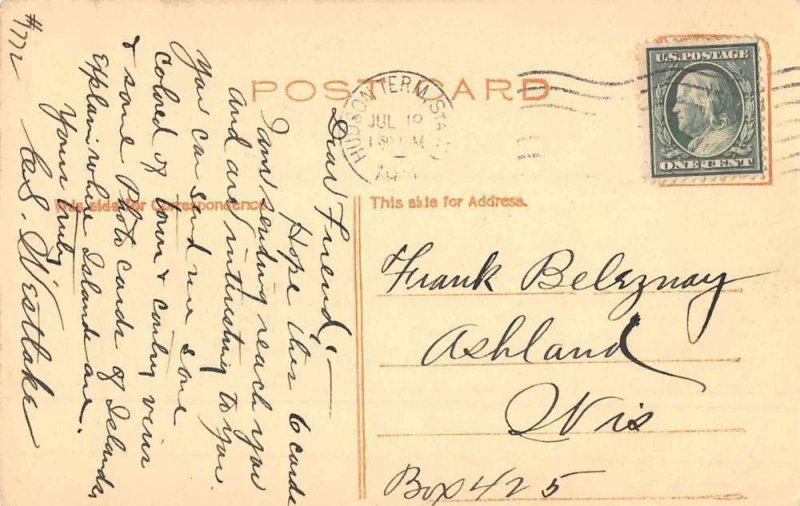 #772
POST CARD
HUDSON TERM. STA
JUL 19
1 30 PM
U.S. POSTAGE
ONE CENT
This side for Correspondence.
This side for Address.
Dear Friend:—
Hope this 6 cards
I am sending reach you
and are interesting to you.
You can send me some
colored of town & County views
& some Photo cards of Islands
Explain where Islands are.
Yours truly
C.S. Westlake
Frank Beleznay
Ashland
Wis
Box 425